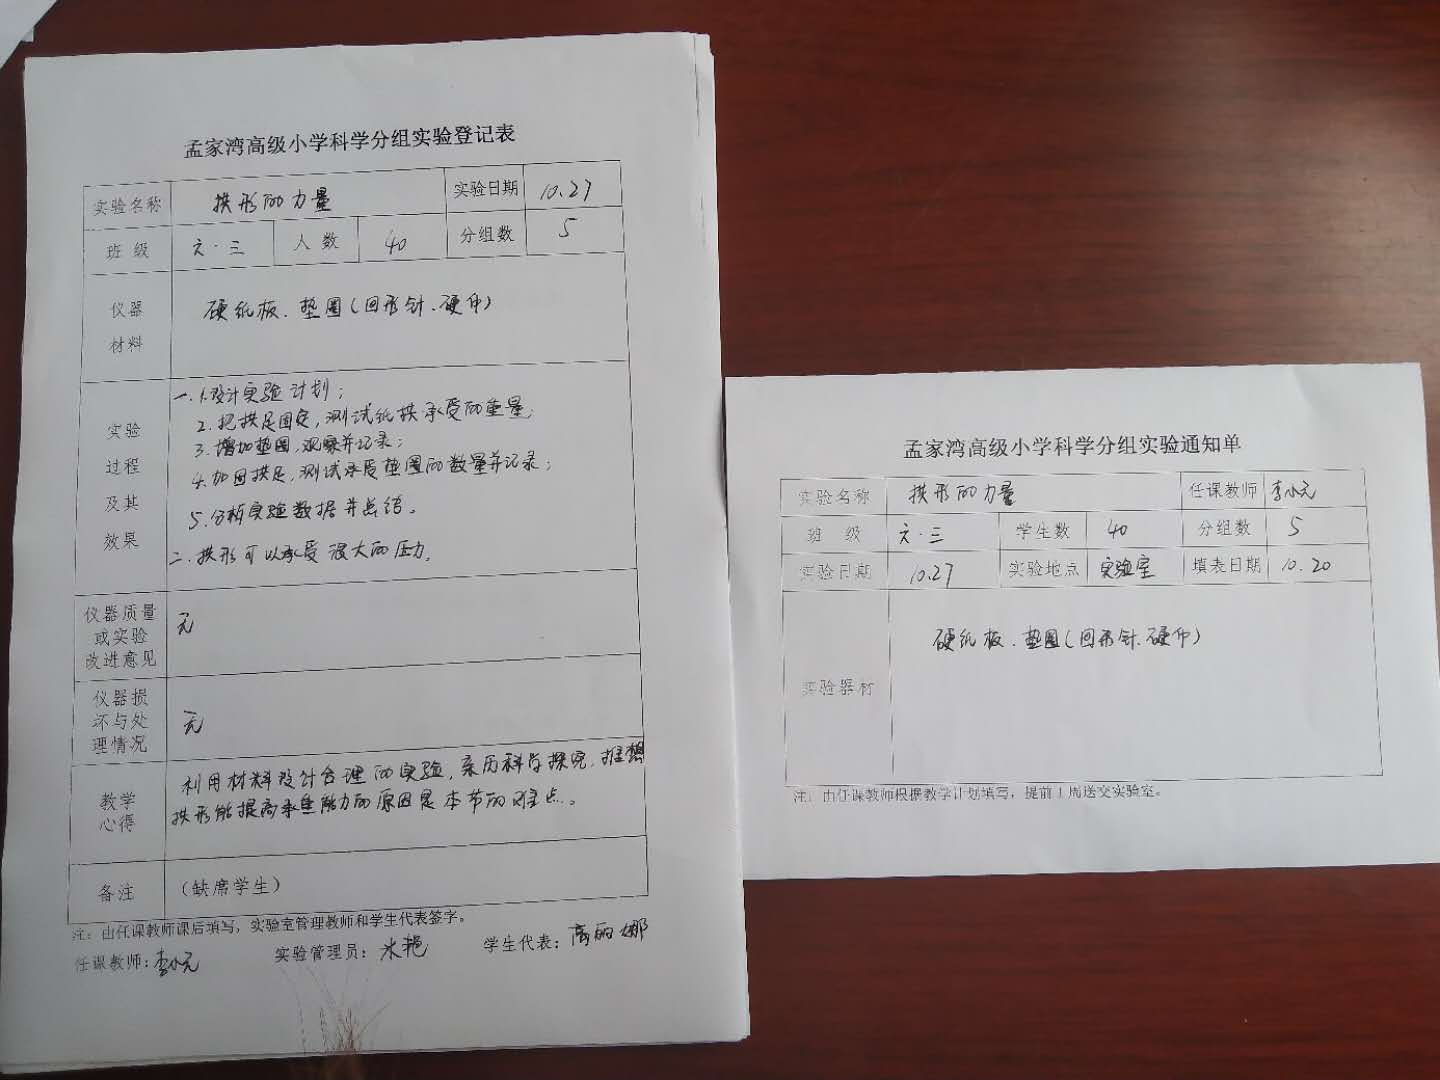 孟家湾高级小学科学分组实验登记表
实验名称 拱形的力量 实验日期 10.27
班 级 六·三 人 数 40 分组数 5
仪器
材料
硬纸板、垫圈(回形针、硬币)
实验
过程
及其
效果
一.1.设计实验计划;
2.把拱足固定,测试纸拱承受的重量;
3.增加垫圈,观察并记录;
4.加固拱足,测试承受垫圈的数量并记录;
5.分析实验数据并总结。
二.拱形可以承受很大的压力。
仪器质量
或实验
改进意见
无
仪器损
坏与处
理情况
无
教学
心得
利用材料设计合理的实验,亲历科学探究,推想
拱形能提高承重能力的原因是本节的难点。
备注 (缺席学生)
注:由任课教师课后填写,实验室管理教师和学生代表签字。
任课教师:李小元 实验管理员: 学生代表:高丽娜
孟家湾高级小学科学分组实验通知单
实验名称 拱形的力量 任课教师 李小元
班 级 六·三 学生数 40 分组数 5
实验日期 10.27 实验地点 实验室 填表日期 10.20
实验器材
硬纸板、垫圈(回形针、硬币)
注:由任课教师根据教学计划填写,提前1周送交实验室。